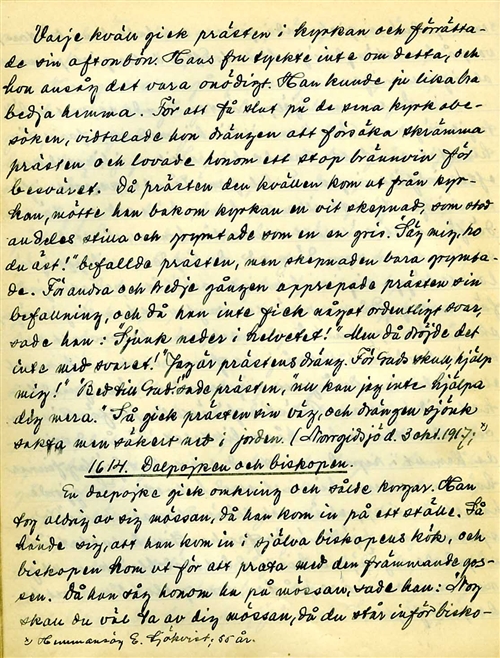 Varje kväll gick prästen i kyrkan och förrätta-
de sin aftonbön. Hans fru tyckte inte om detta, och
hon ansåg det vara onödigt. Han kunde ju lika bra
bedja hemma. För att få slut på de sena kyrkobe-
söken, vidtalade hon drängen att försöka skrämma
prästen och lovade honom ett stop brännvin för
besväret. Då prästen den kvällen kom ut från kyr-
kan, mötte han bakom kyrkan en vit skepnad, som stod
alldeles stilla och grymtade som en en gris. "Säg mig, ho
du äst!" befallde prästen, men skepnaden bara grymta-
de. För andra och tredje gången upprepade prästen sin
befallning, och då han inte fick något ordentligt svar,
sade han: "Sjunk neder i helvetet!" Men då dröjde det
inte med svaret. "Jag är prästens dräng. För Guds skull, hjälp
mig!" "Bed till Gud" sade prästen, nu kan jag inte hjälpa
dig mera." Så gick prästen sin väg, och drängen sjönk
sakta men säkert ned i jorden. (Norrgidsjö d. 3 okt. 1917; x)
1614. Dalpojken och biskopen.
En dalpojke gick omkring och sålde korgar. Han
tog aldrig av sig mössan, då han kom in på ett ställe. Så
hände sig, att han kom in i själva biskopens kök, och
biskopen kom ut för att prata med den främmande gos-
sen. Då han såg honom ha på mössan, sade han: "Nog
skall du väl ta av dig mössan, då du står inför bisko-
x) Hemmansäg. E. Sjökvist, 55 år.